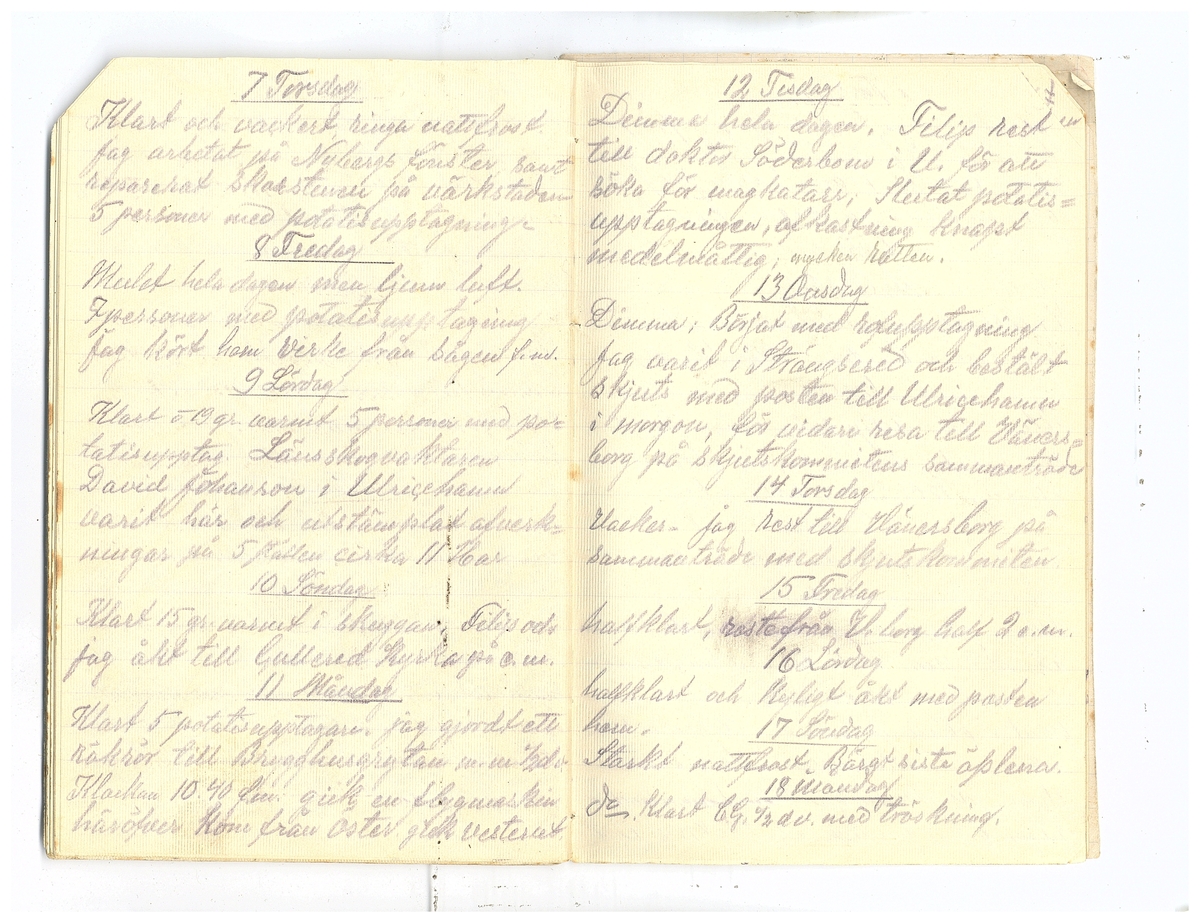 7 Torsdag
Klart och vackert, ringa nattfrost.
Jag arbetat på Nybergs fönster samt
reparerat skorstenen på värkstaden
5 personer med potatisupptagning
8 Fredag
Mulet hela dagen men ljum luft.
7 personer med potatisupptagning
Jag kört hem virke från sågen f.m.
9 Lördag
Klart o 19 gr. varmt 5 personer med po=
tatisupptag. Länsskogvaktaren
David Johanson i Ulricehamn
varit här och utstämplat afverk=
ningar på 5 ställen cirka 11 Har
10 Söndag
Klart 15 gr. varmt i skuggan, Filip och
jag åkt till Gullered Kyrka på e.m.
11 Måndag
Klart 5 potatisupptagare. jag gjordt ett
rökrör till Brygghusgrytan m.m ½dv.
Klockan 10.40 f.m. gick en flygmaskin
häröfver kom från öster gick vesterut
12 Tisdag
Dimma hela dagen. Filip rest
till doktor Söderbom i U. för att
söka för magkatarr; Slutat potatis=
upptagningen, afkastning knapt
medelmåttig; mycken rötten.
13 Onsdag
Dimma; Börjat med rofupptagning
Jag varit i Strängsered och bestält
skjuts med posten till Ulricehamn
i morgon, för vidare resa till Väners=
borg på skjutskommitens sammanträde
14 Torsdag
Vacker - jag rest till Vänersborg på
sammanträde med skjutskommiten
15 Fredag
halfklart, reste från V.borg half 2 e.m.
16 Lördag
halfklart och kyligt åkt med posten
hem.
17 Söndag
Starkt nattfrost. Bärgt sista äplena.
18 Måndag
do Klart CG. ½ dv. med tröskning.